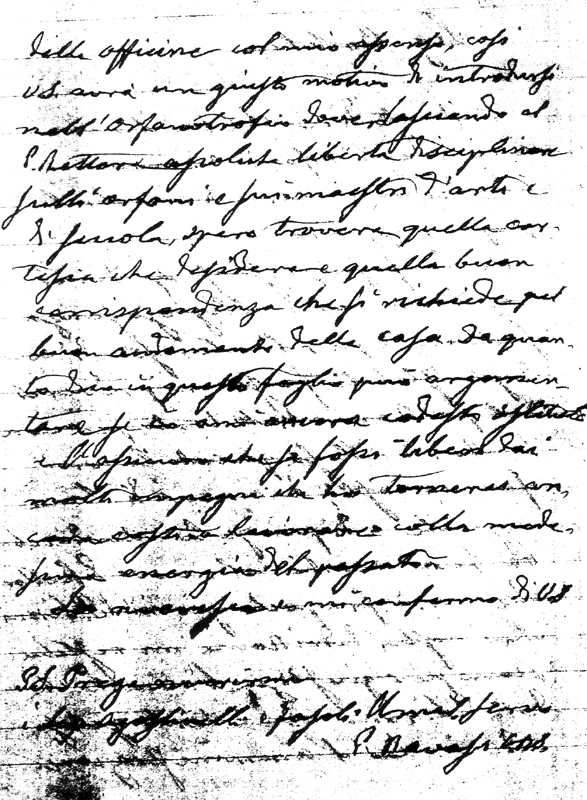 delle officine col mio assenso, così
VS. avrà un giusto motivo di introdursi
nell'Orfanotrofio dove lasciando al
P. Rettore assoluta libertà disciplinare
sulli orfani e sui maestri d'arte e
di scuola, spero troverà quella cor-
tesia che desidera e quella buon
corrispondenza che si richiede pel
buon andamento della casa. Da quan-
to dico in questo foglio può argomen-
tare se io ami ancora codesto istituto
e l'assicuro che se fossi libero dai
molti impegni che ho tornerei an-
cora costì a lavorare colla mede-
sima energia del passato.
La riverisco e mi confermo di VS
P.S. Prego riverirmi
i e Fasoli. Umil. Servo
P.